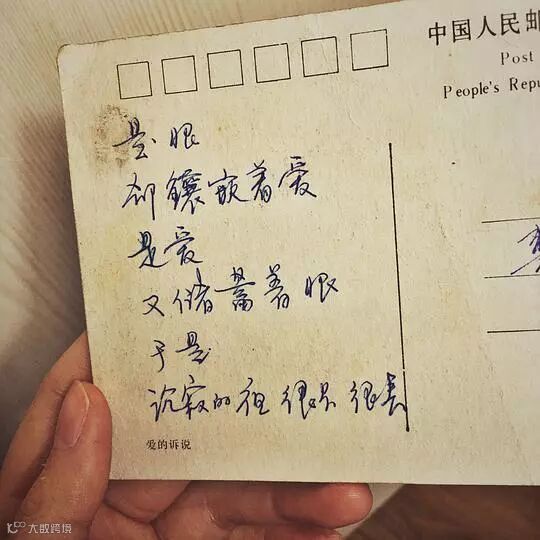 中国人民邮
Post
People's Repu
是恨
却镶嵌着爱
是爱
又储蓄着恨
于是
沉寂的 很 很长
爱的诉说
大数跨境